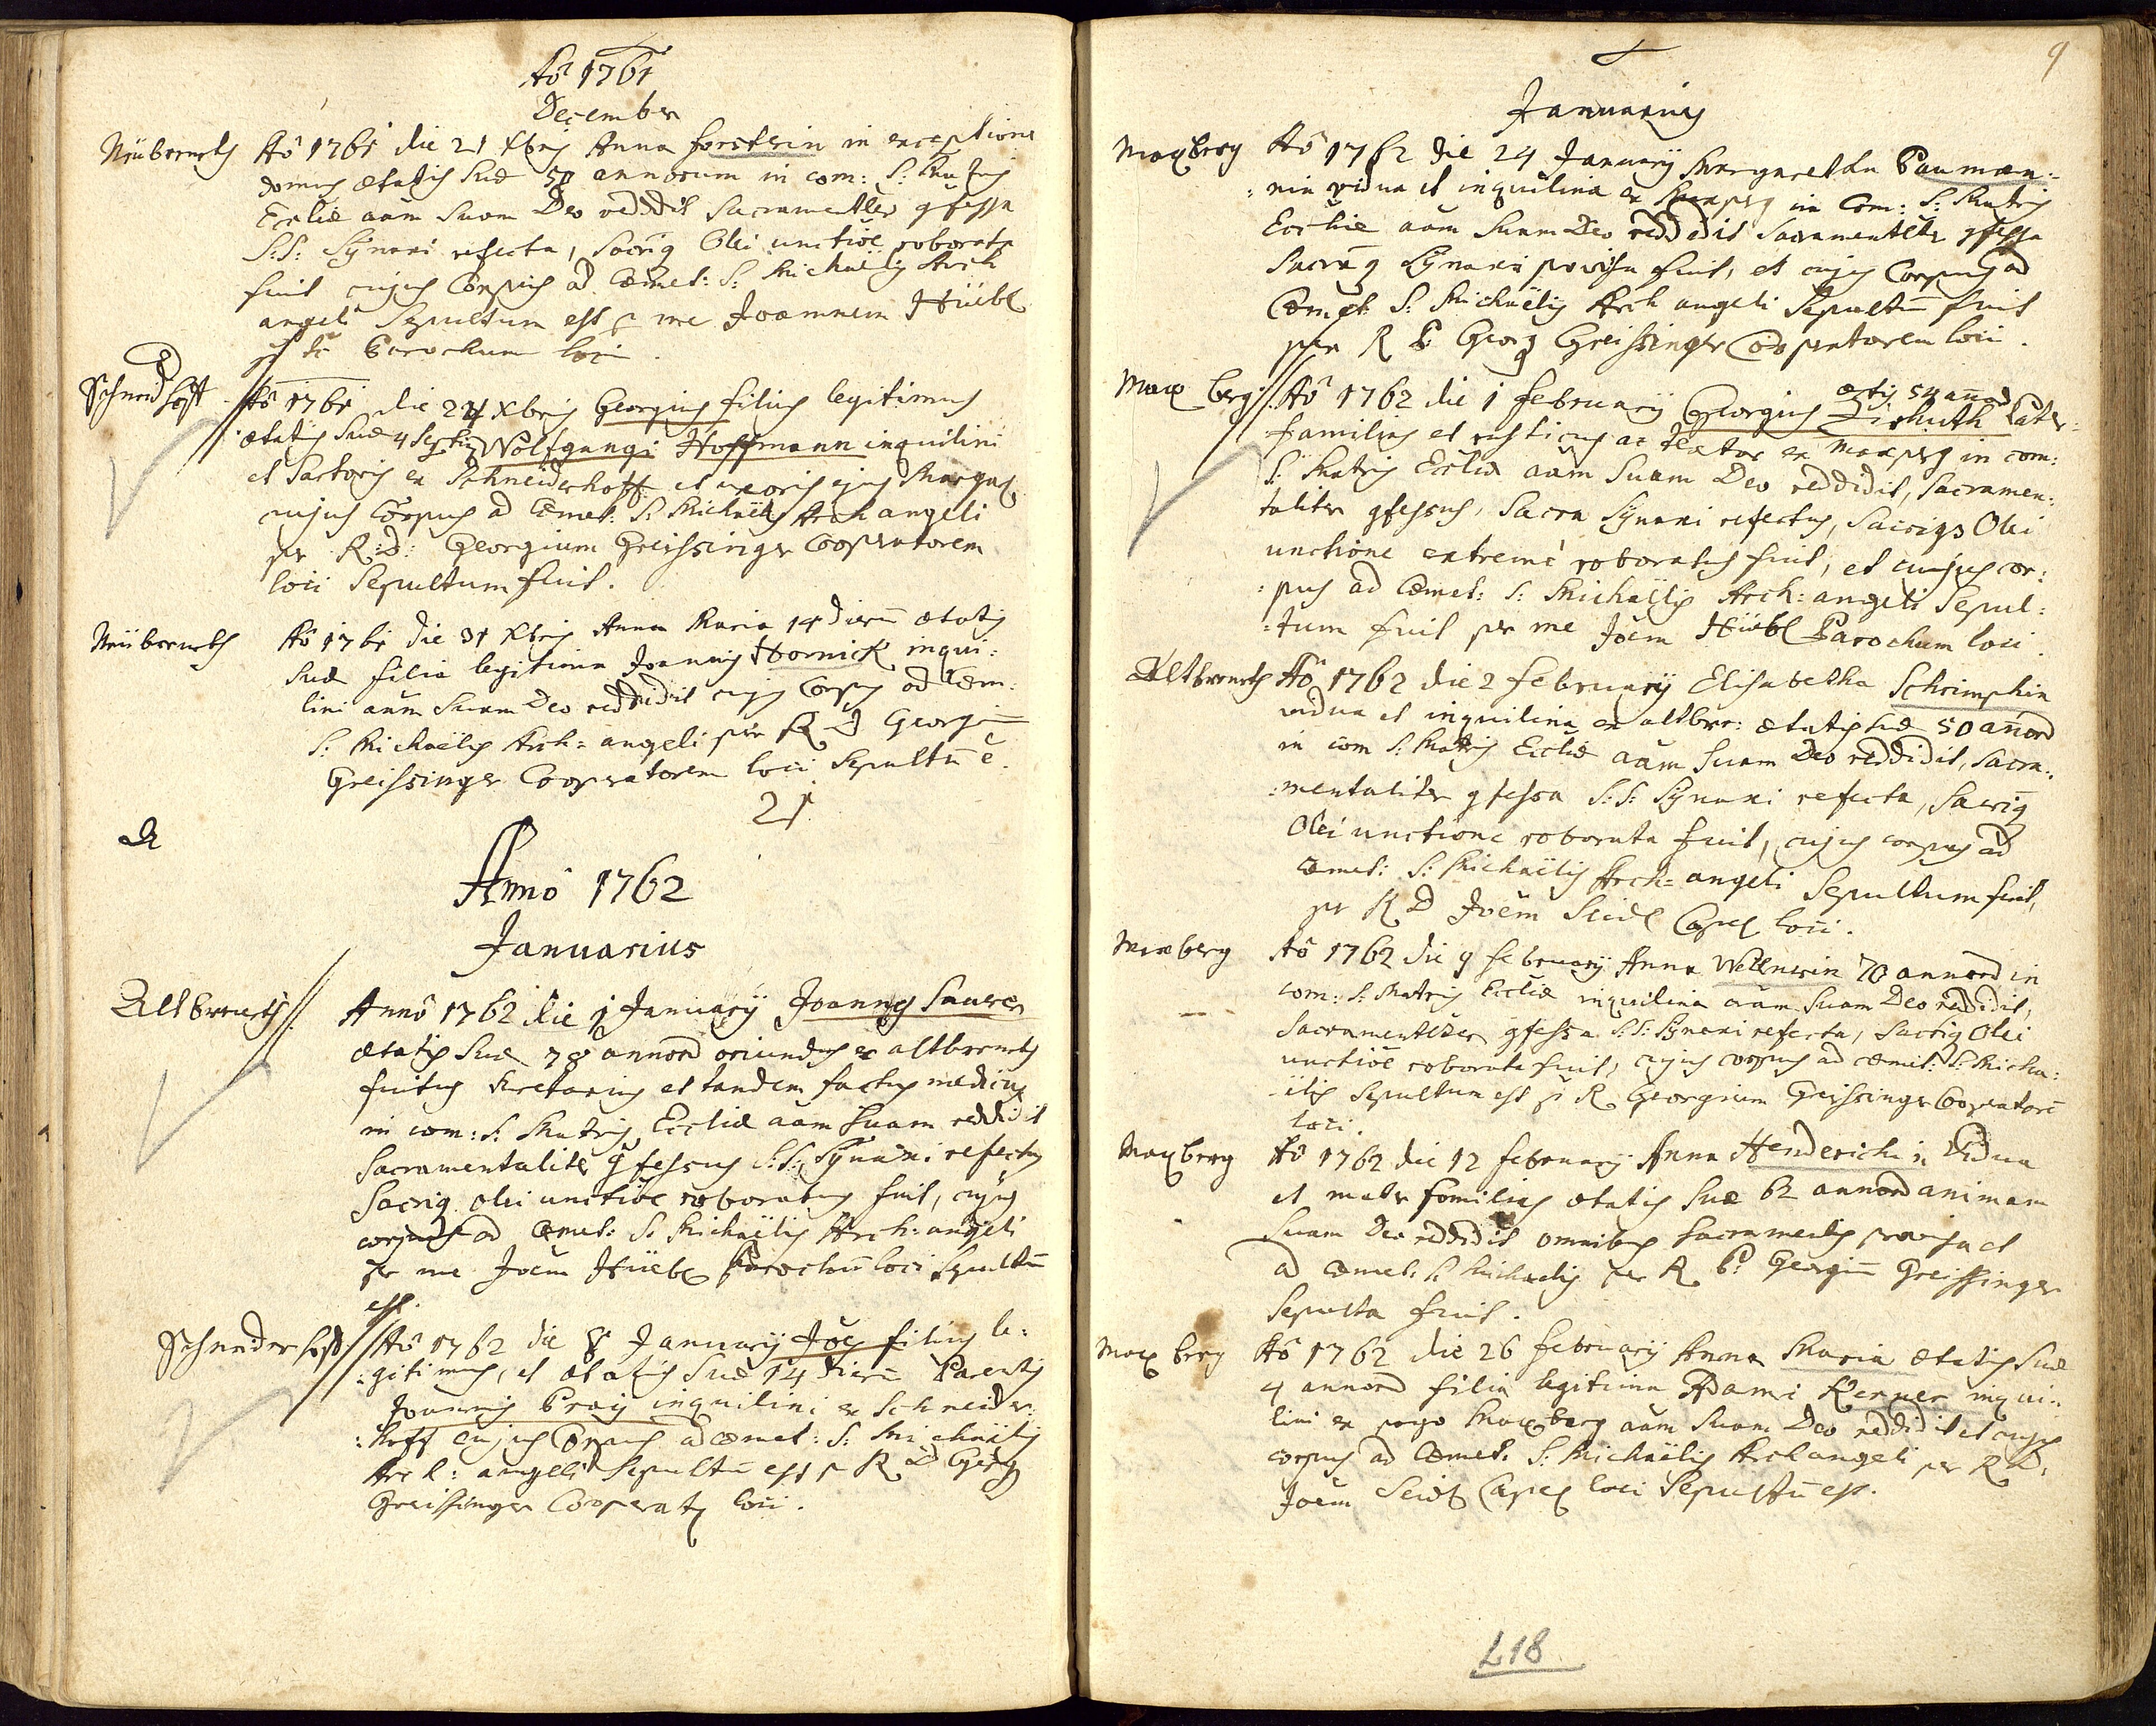 Aõ 1761
December
Neübernrth Aõ 1761 die 21 Xbris Anna forsterin in exceptione
domus ætatis suæ 50 annorum in com: S: Matris
Ecclíæ aãm suam Deo reddidit Sacramentler gfessa
S:S: Sÿnaxi refecta, sacriq Olei unctiõe roborata
fuit cujus Corpus ad Cœmet: S: Michaëlis Arch
angeli Sepultum est p me Joannem Hüebl
Parochum loci.
Schneid hoff Aõ 1761 die 24 Xbris Georgius filius legitimus
ætatis suæ 4 Wolfgangi Hoffmann inquilini
et Sartoris ex Schneiderhoff et uxoris ejus Margar
cujus Corpus ad Cœmet: S: Michaëlis Archangeli
per R:D: Georgium Greissinger Cooperatorem
loci Sepultum fuit.
Neübernrth Aõ 1761 die 31 Xbris Anna Maria 14 dierũ ætatis
suæ filia legitima Joannis Hornick inqui:
lini aãm suam Deo reddidit cujus Corpus ad Cœm:
S: Michaëlis Arch=angeli per R D Georgiũ
Greissinger Cooperatorem loci Sepultũ ẽ.
21
Annô 1762
Januarius
Altbrenrth Annô 1762 die 1 Januarÿ Joannes Saurer
ætatis suæ 78 annorũ oriundus ex altbrenrth
fuitus Secretarius et tandem factus medicus
in com: S: Matris Ecclíæ aãm suam reddidit
Sacramentaliter gfessus S:S: Sÿnaxi refectus
Sacriq olei unctiõe roboratus fuit, cujus
corpus ad Cœmet: S: Michaëlis Arch:angeli
per me Joẽm Hüebl Parochũ loci Sepultũ
est.
Schneiderhoff Aõ 1762 die 8 Januarÿ Jões filius le:
:gitimus, et ætatis suæ 14 dierũ Parentis
Joannis Praÿ inquilini ex Schneider:
:hoff cujus Corpus ad cœmet: S: Michaëlis
Arch: angeli Sepultũ est p R D Georg
Greissinger Cooperat loci.
9
Januarius
Maxberg Aõ 1762 die 24 Januarÿ Margaretha Pauman:
:nin vidua et inquilina ex Maxprg in Com: S: Matris
Ecclíæ aãm suam Deo reddidit Sacramentler gfessa
Sacraq Sÿnaxi provisa fuit, et cujus Corpus ad
Cœmet S: Michaëlis Arch angeli Sepultũ fuit
per R P Georg Greissinger Cooperatorem loci.
ætis 54 annorũ
Maxberg Aõ 1762 die 1 Februarÿ Georgius Zirkuth Pater:
familias et rusticus ac textor ex Maxprg in com:
S: Matris Ecclíæ aãm suam Deo reddidit, Sacramen:
taliter gfessus, Sacra Sÿnaxi refectus, Sacriqs Olei
unctione extremè roboratus fuit, et cujus cor:
:pus ad Cœmet: S: Michaëlis Arch:angeli Sepul:
:tum fuit per me Joẽm Hüebl Parochum loci.
Altbrenrth Aõ 1762 die 2 Februarÿ Elisabetha Schrimphin
vidua et inquilina ex altbrr: ætatis suæ 50 añorũ
in com S: Matris Ecclíæ aãm suam Deo reddidit, Sacra:
:mentaliter gfessa S:S: Sÿnaxi refecta, Sacriq
Olei unctione roborata fuit, cujus corpus ad
cœmet: S: Michaëlis Arch=angeli Sepultum fuit,
per R D Joẽm Seidl Capel loci.
Maxberg Aõ 1762 die 9 Februarÿ Anna Wellnerin 70 annorũ in
com: S: Matris Ecclíæ inquilina aãm suam Deo reddidit,
Sacramentlter gfessa S:S: Sÿnaxi refecta, Sacriq Olei
unctiõe roborata fuit, cujus corpus ad cœmet: S: Micha:
:ëlis Sepultum est p R Georgium Greissinger Cooperatorẽ
loci.
Maxberg Aõ 1762 die 12 Februarÿ Anna Henderichin Vidua
et mater familias ætatis suæ 62 annorũ animam
suam Deo reddidit omnibus sacramentis provisa et
ad cœmet: S: Michaelis per R P: Georgiũ Greissinger
Sepulta fuit.
Maxberg Aõ 1762 die 26 Februarÿ Anna Maria ætatis suæ
4 annorũ filia legitima Adami Kerner inqui:
lini ex pago Maxberg aãm suam Deo reddidit et cujus
corpus ad Cœmet: S: Michaëlis Archangeli per R D:
Joẽm Seidl Capel loci Sepultũ est.
L18